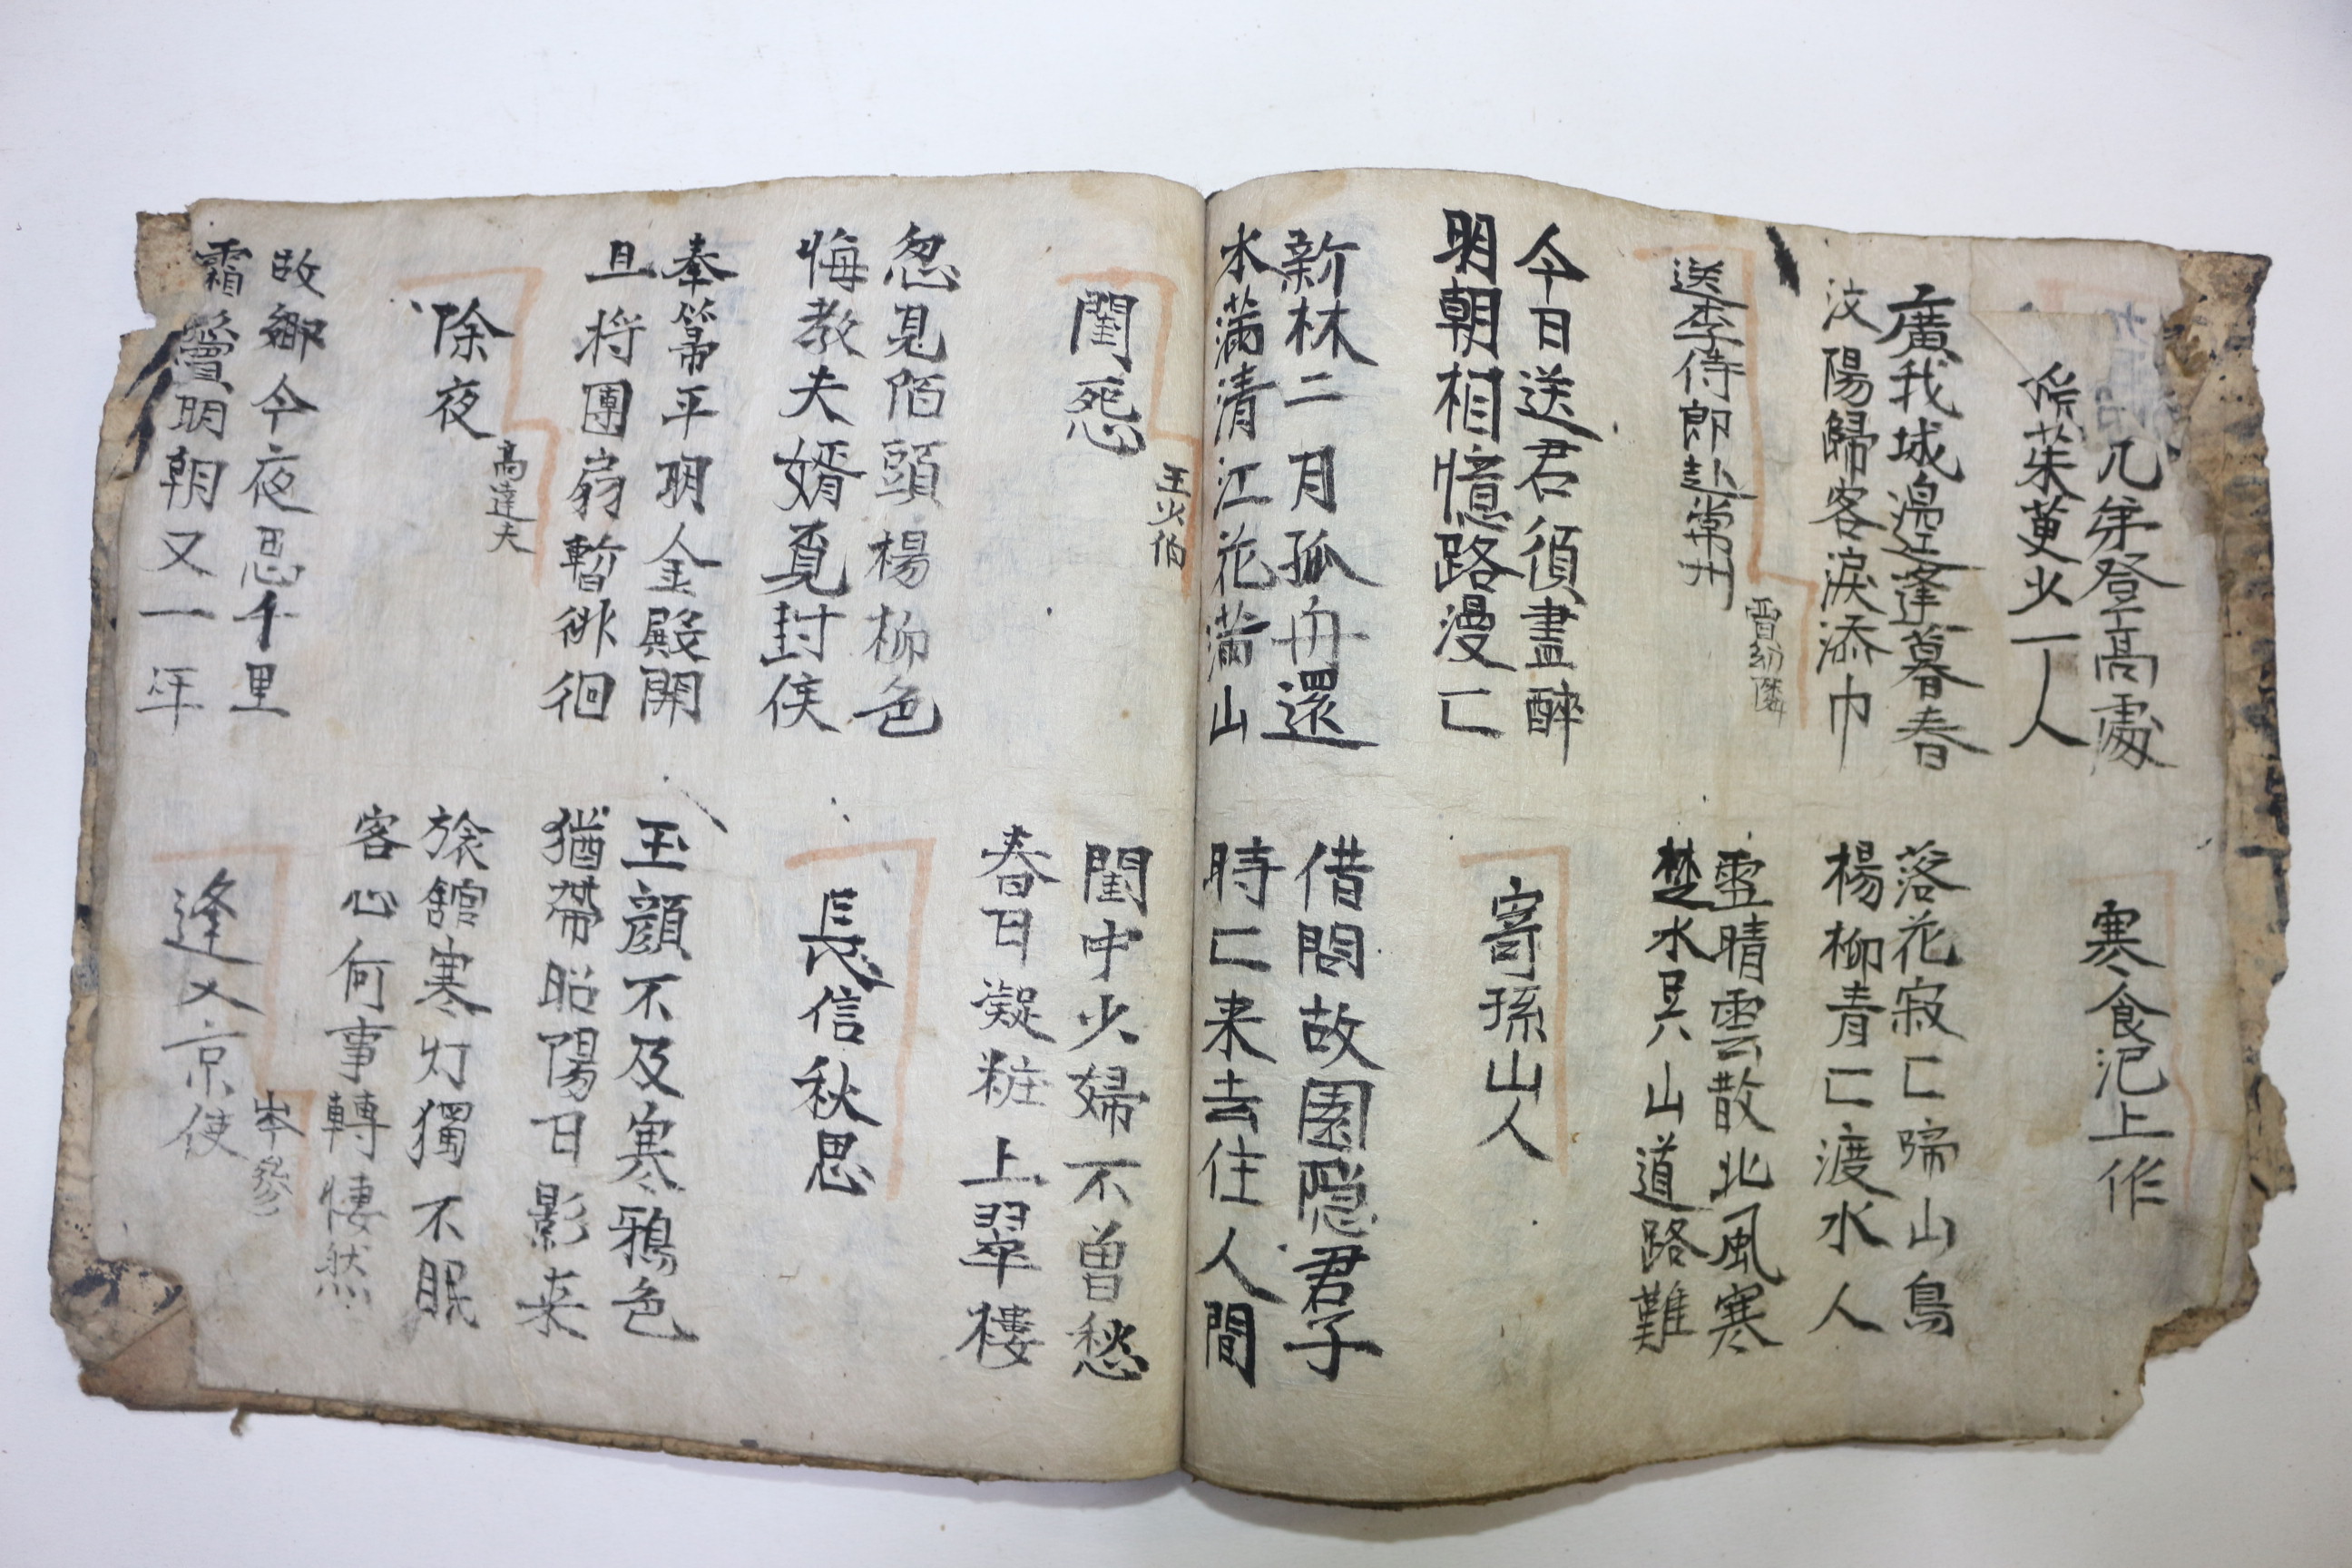 兄弟登高處
茱萸少一人
寒食汜上作
廣武城邊逢暮春
汶陽歸客淚添巾
落花寂〻啼山鳥
楊柳青〻渡水人
送李侍郎赴常州
賈幼隣
雪晴雲散北風寒
楚水吳山道路難
今日送君須盡醉
明朝相憶路漫〻
寄孫山人
新林二月孤舟還
水滿清江花滿山
借問故園隱君子
時〻来去住人間
閨怨
王少伯
閨中少婦不曽愁
春日凝粧上翠樓
忽見陌頭楊柳色
悔教夫婿覓封侯
長信秋思
奉箒平明金殿開
且将團扇暫徘徊
玉顔不及寒鴉色
猶帶昭陽日影来
除夜
高達夫
旅舘寒灯獨不眠
客心何事轉悽然
故鄉今夜思千里
霜鬢明朝又一年
逢入京使
岑參